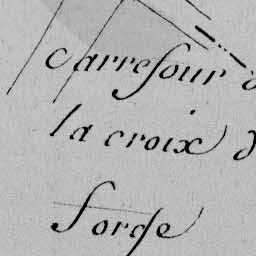 carrefour d
la croix d
Sorge